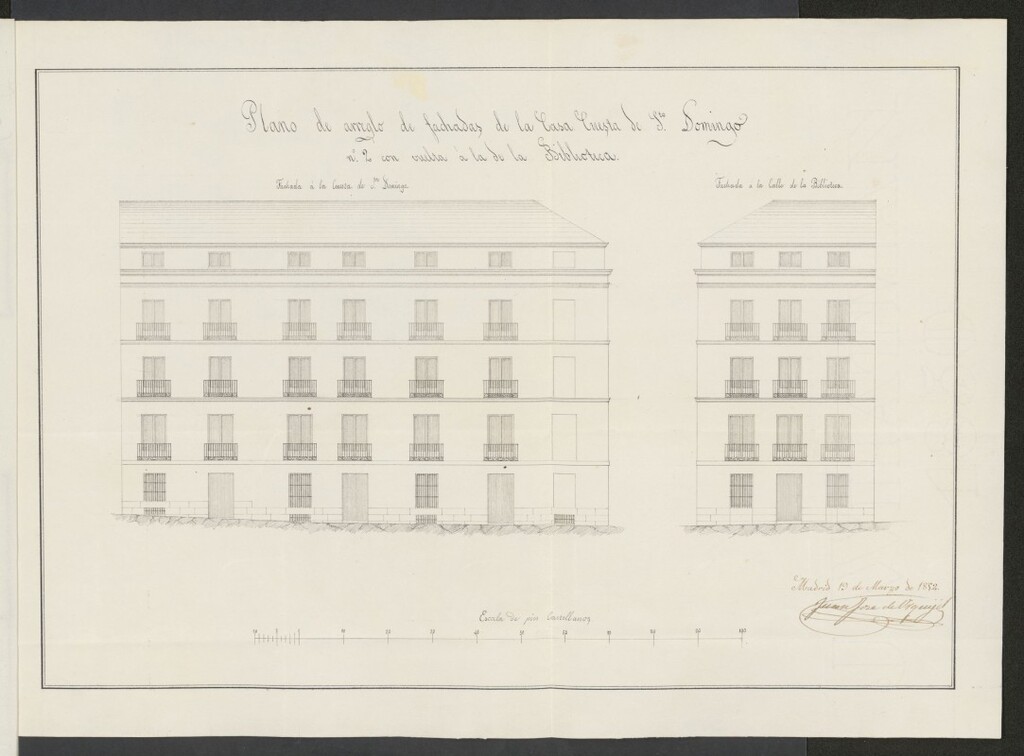 Plano de arreglo de fachadas de la Casa Cuesta de Sto. Domingo
nº. 2 con vuelta á la de la Biblioteca.
Fachada á la Cuesta de Sto. Domingo.
Fachada a la Calle de la Biblioteca.
Madrid de Marzo de
Juan José de Urquijo
Escala de pies Castellanos